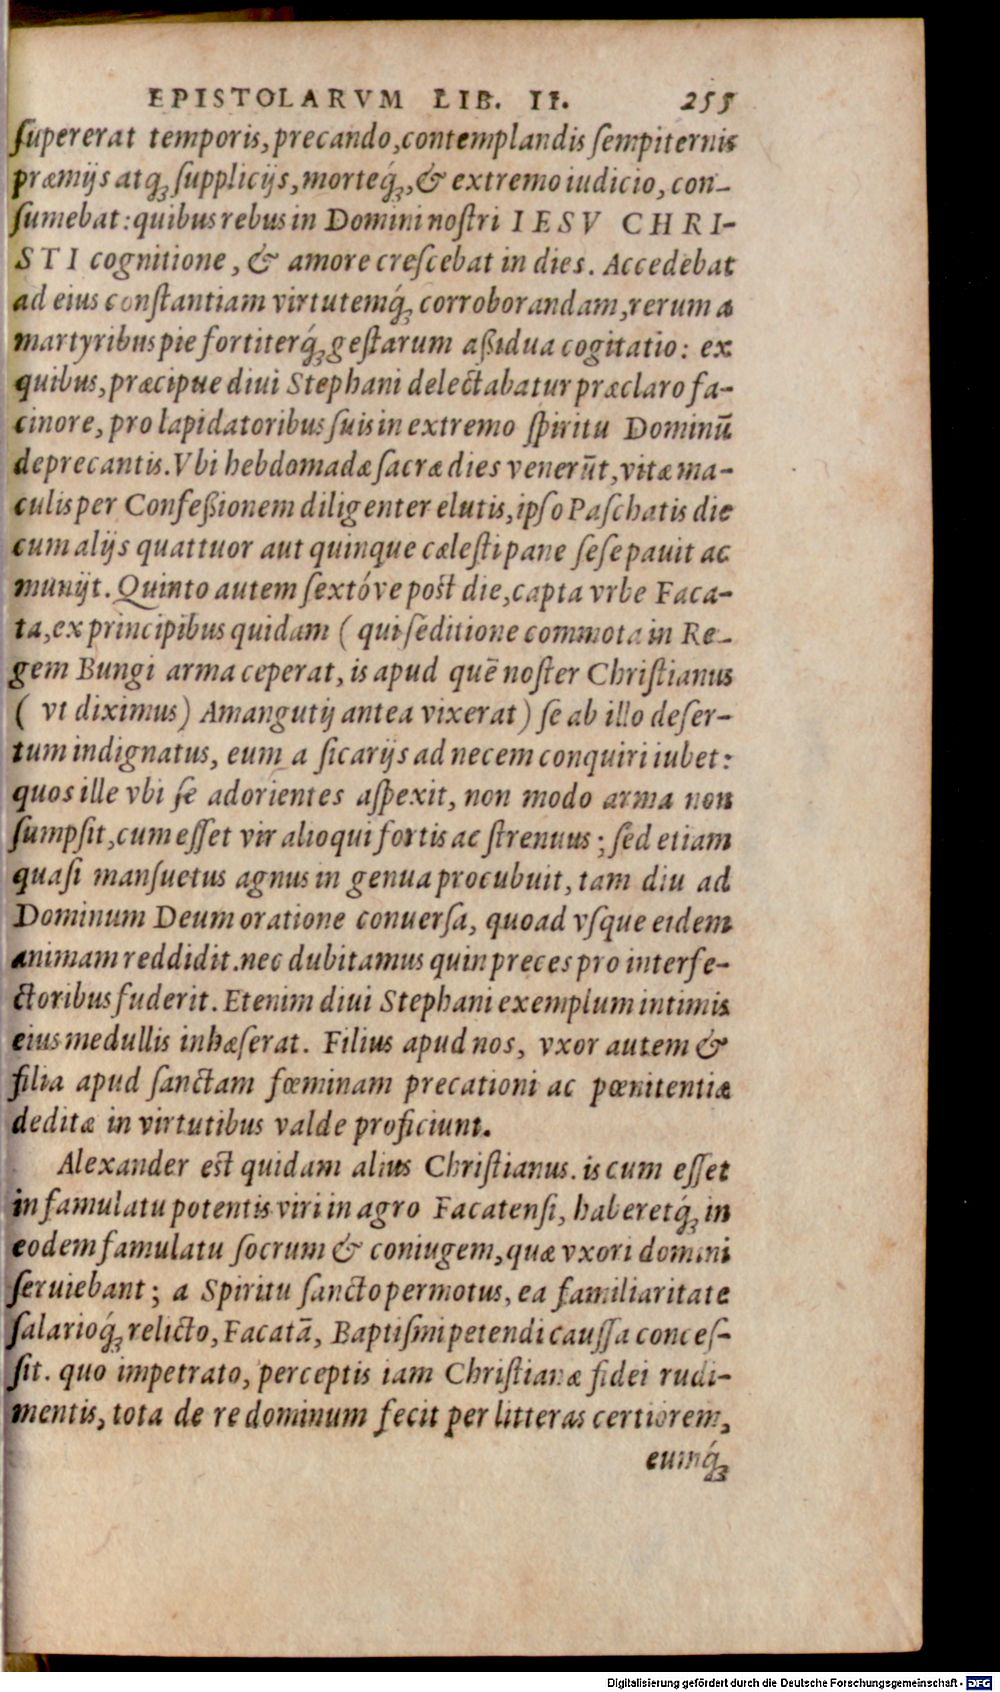 EPISTOLARVM LIB. II. 255
ſupererat temporis, precando, contemplandis ſempiternis
præmijs atq́; ſupplicijs, morteq́;, & extremo iudicio, con-
ſumebat: quibus rebus in Domini noſtri IESV CHRI-
STI cognitione, & amore creſcebat in dies. Accedebat
ad eius conſtantiam virtutemq́; corroborandam, rerum a
martyribus pie fortiterq́; geſtarum aßidua cogitatio: ex
quibus, præcipue diui Stephani delectabatur præclaro fa-
cinore, pro lapidatoribus ſuis in extremo ſpiritu Dominū
deprecantis. Vbi hebdomadæ ſacræ dies venerūt, vitæ ma-
culis per Confeßionem diligenter elutis, ipſo Paſchatis die
cum alijs quattuor aut quinque cæleſti pane ſeſe pauit ac
munijt. Quinto autem ſextóve poſt die, capta vrbe Faca-
ta, ex principibus quidam ( qui ſeditione commota in Re-
gem Bungi arma ceperat, is apud quē noſter Chriſtianus
( vt diximus) Amangutij antea vixerat ) ſe ab illo deſer-
tum indignatus, eum a ſicarijs ad necem conquiri iubet:
quos ille vbi ſe adorientes aſpexit, non modo arma non
ſumpſit, cum eſſet vir alioqui fortis ac ſtrenuus; ſed etiam
quaſi manſuetus agnus in genua procubuit, tam diu ad
Dominum Deum oratione conuerſa, quoad vſque eidem
animam reddidit. nec dubitamus quin preces pro interfe-
ctoribus fuderit. Etenim diui Stephani exemplum intimis
eius medullis inhæſerat. Filius apud nos, vxor autem &
filia apud ſanctam fœminam precationi ac pœnitentiæ
deditæ in virtutibus valde proficiunt.
Alexander eſt quidam alius Chriſtianus. is cum eſſet
in famulatu potentis viri in agro Facatenſi, haberetq́; in
eodem famulatu ſocrum & coniugem, quæ vxori domini
ſeruiebant; a Spiritu ſancto permotus, ea familiaritate
ſalarioq́; relicto, Facatā, Baptiſmi petendi cauſſa conceſ-
ſit. quo impetrato, perceptis iam Chriſtianæ fidei rudi-
mentis, tota de re dominum fecit per litteras certiorem,
eumq́;
Digitalisierung gefördert durch die Deutsche Forschungsgemeinschaft - DFG